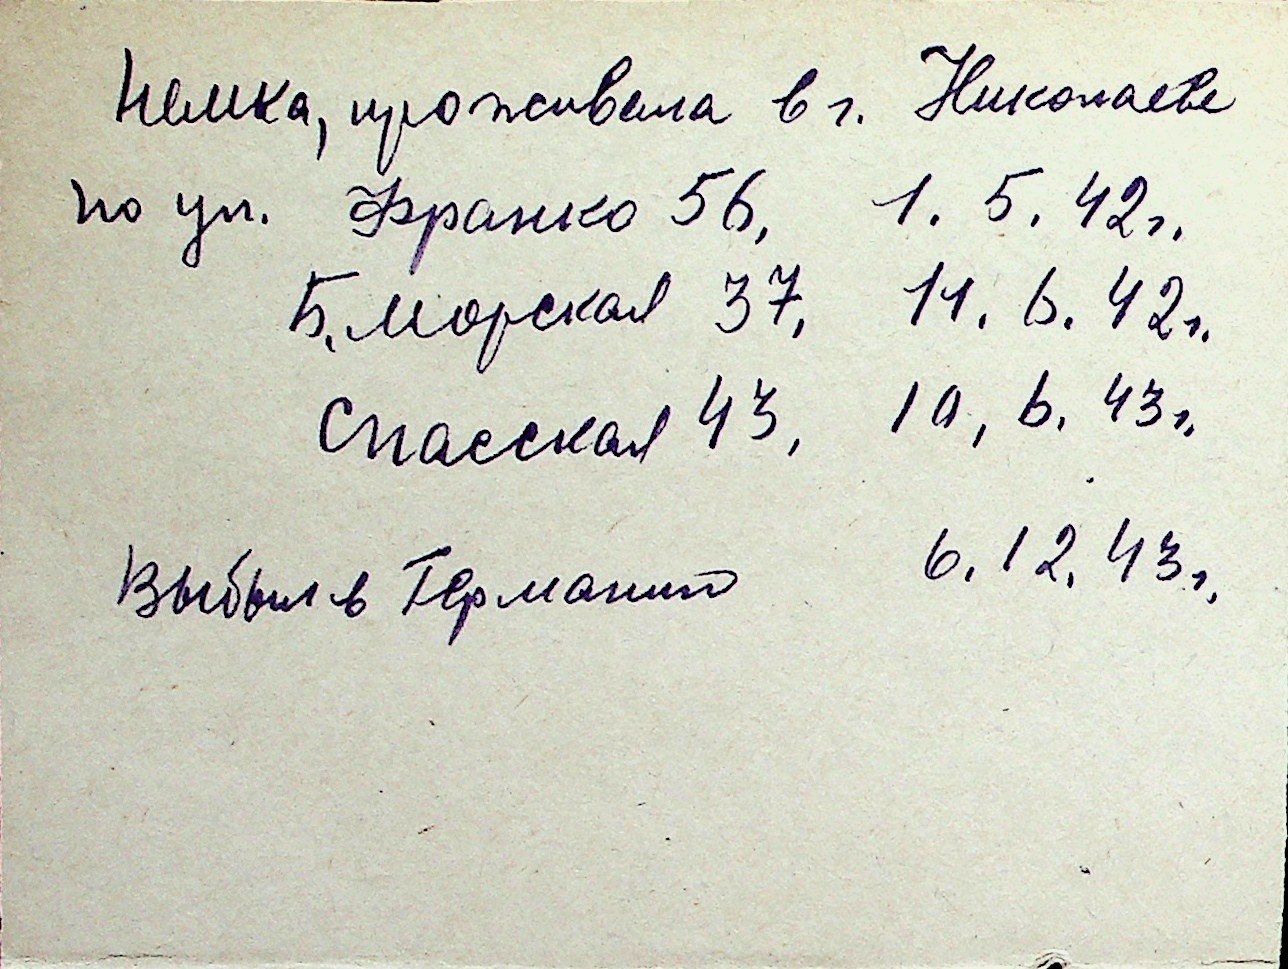 Немка, проживала в г. Николаеве
по ул. Франко 56, 1. 5. 42г.
Б. Морская 37, 11. 6. 42г.
Спасская 43, 10, 6. 43г.
Выбыл в Германию 6. 12. 43г.